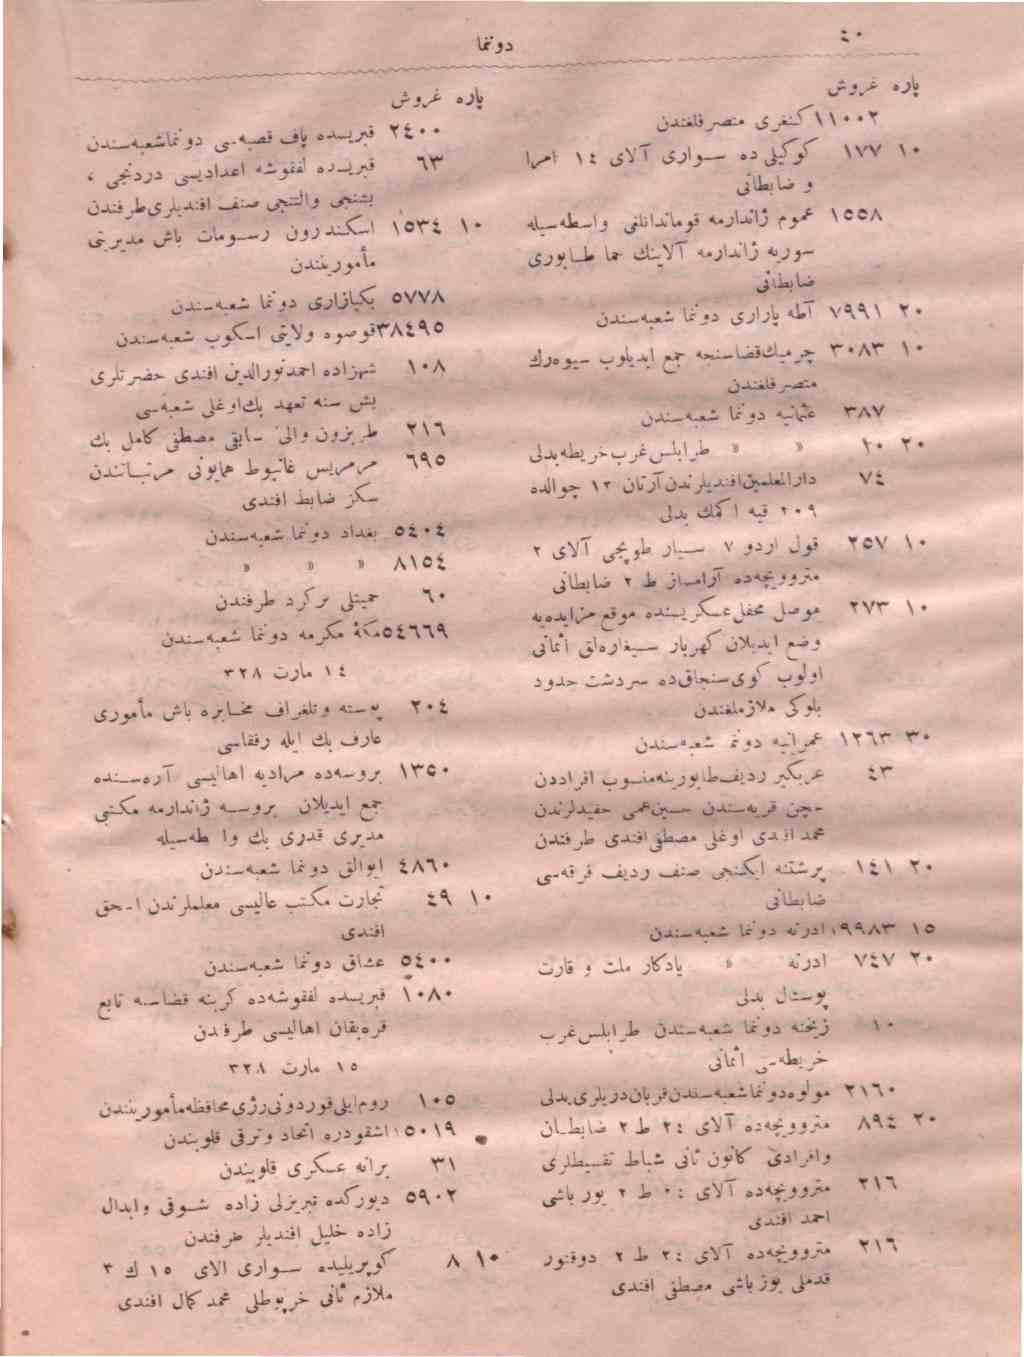 ٤٠
دوننما
پاره غروش
١١٠٠٢ كنغری متصرفلغندن
١٠ ١٧٧ كوكيلی ده سواری آلای ١٤ امرا
و ضابطانی
١٥٥٨ عموم ژاندارمه قوماندانلغی واسطه‌سیله
سوریه ژاندارمه آلاینك حما طابوری
ضابطانی
٢٠ ٧٩٩١ آطه پازاری دوننما شعبه‌سندن
١٠ ٣٠٨٣ چرمیك قضاسنجه جمع ایدیلوب سیوه‌رك
متصرفلغندن
٣٨٧ عثمانیه دوننما شعبه‌سندن
٢٠ ٢٠ » » طرابلس‌غرب خریطه بدلی
٧٤ دارالمعلمین افندیلرندن آرتان ١٢ چوالده
٢٠٩ قیه اكمك بدلی
١٠ ٢٥٧ قول اردو ٧ سیار طوپجی آلای ٢
متروویچه‌ده آرامساز ط ٢ ضابطانی
١٠ ٢٧٣ موصل محفل عسكریسنده موقع مزایده‌یه
وضع ایدیلان كهربار سیغاره‌لق اثمانی
اولوب كوی سنجاق‌ده سردشت حدود
بلوكی ملازملغندن
٣٠ ١٢٦٣ عمرانیه دوننما شعبه‌سندن
٤٣ عربكیر ردیف طابورینه منسوب افراددن
قریه‌سندن حسین عمی حفیدلرندن
محمد افندی اوغلی مصطفی افندی طرفندن
٢٠ ١٤١ پرشتنه ایكنجی صنف ردیف فرقه‌سی
ضابطانی
١٥ ١٩٩٨٣ ادرنه دوننما شعبه‌سندن
٢٠ ٧٤٧ ادرنه » یادكار ملت و قارت
پوستال بدلی
١٠ زیخنه دوننما شعبه‌سندن طرابلس غرب
خریطه‌سی اثمانی
٢١٦٠ مولوه دوننما شعبه‌سندن قربان دریلری بدلی
٢٠ ٨٩٤ متروویچه‌ده آلای ٢٤ ط ٢ ضابطان
وافرادی كانون ثانی شباط تقسیطلری
٢١٦ متروویچه‌ده آلای ٢٤ ط ٢ یوز باشی
احمد افندی
٢١٦ متروویچه‌ده آلای ٢٤ ط ٢ دوقتور
قدملی یوز باشی مصطفی افندی
پاره غروش
٢٤٠٠ قبریسده پاف قصبه‌سی دوننما شعبه‌سندن
٦٣ قبریسده لفقوشه اعدادیسی دردنجی ،
بشنجی والتنجی صنف افندیلری طرفندن
١٠ ١٥٣٤ اسكندرون رسومات باش مدیریتی
مأمورینندن
٥٧٧٨ بكپازاری دوننما شعبه‌سندن
٣٨٤٩٥ قوصوه ولایتی اسكوب شعبه‌سندن
١٠٨ شهزاده احمد نورالدین افندی حضرتلری
بش سنه تعهد بك اوغلی شعبه‌سی
٢١٦ طربزون والی سابقی مصطفی كامل بك
٦٩٥ مرمریس غانبوط همایونی مرتباتندن
سكز ضابط افندی
٥٤٠٤ بغداد دوننما شعبه‌سندن
٨١٥٤ » » »
٦٠ حمیتلی بر كرد طرفندن
٥٤٦٦٩ مكهٔ مكرمه دوننما شعبه‌سندن
١٤ مارت ٣٢٨
٢٠٤ پوسته وتلغراف مخابره باش مأموری
عارف بك ایله رفقاسی
١٣٥٠ بروسه‌ده مرادیه اهالیسی آره‌سنده
جمع ایدیلان بروسه ژاندارمه مكتبی
مدیری قدری بك واسطه‌سیله
٤٨٦٠ ایوالق دوننما شعبه‌سندن
١٠ ٤٩ تجارت مكتب عالیسی معلملرندن اسحق
افندی
٥٤٠٠ عشاق دوننما شعبه‌سندن
١٠٨٠ قبریسده لفقوشه‌ده كرینه قضاسنه تابع
اهالیسی طرفدن
١٥ مارت ٣٢٨
١٠٥ روم‌ایلی قوردونی رژی محافظه مأمورینندن
١٥٠١٩ اشقودره اتحاد وترقی قلوبندن
٣١ برانه عسكری قلوبندن
٥٩٠٢ دیوركده تبریزلی زاده شوقی وابدال
زاده خلیل افندیلر طرفندن
١٠ ٨ كوپریلیده سواری الای ١٥ ك ٣
ملازم ثانی خرپوطلی محمد كمال افندی